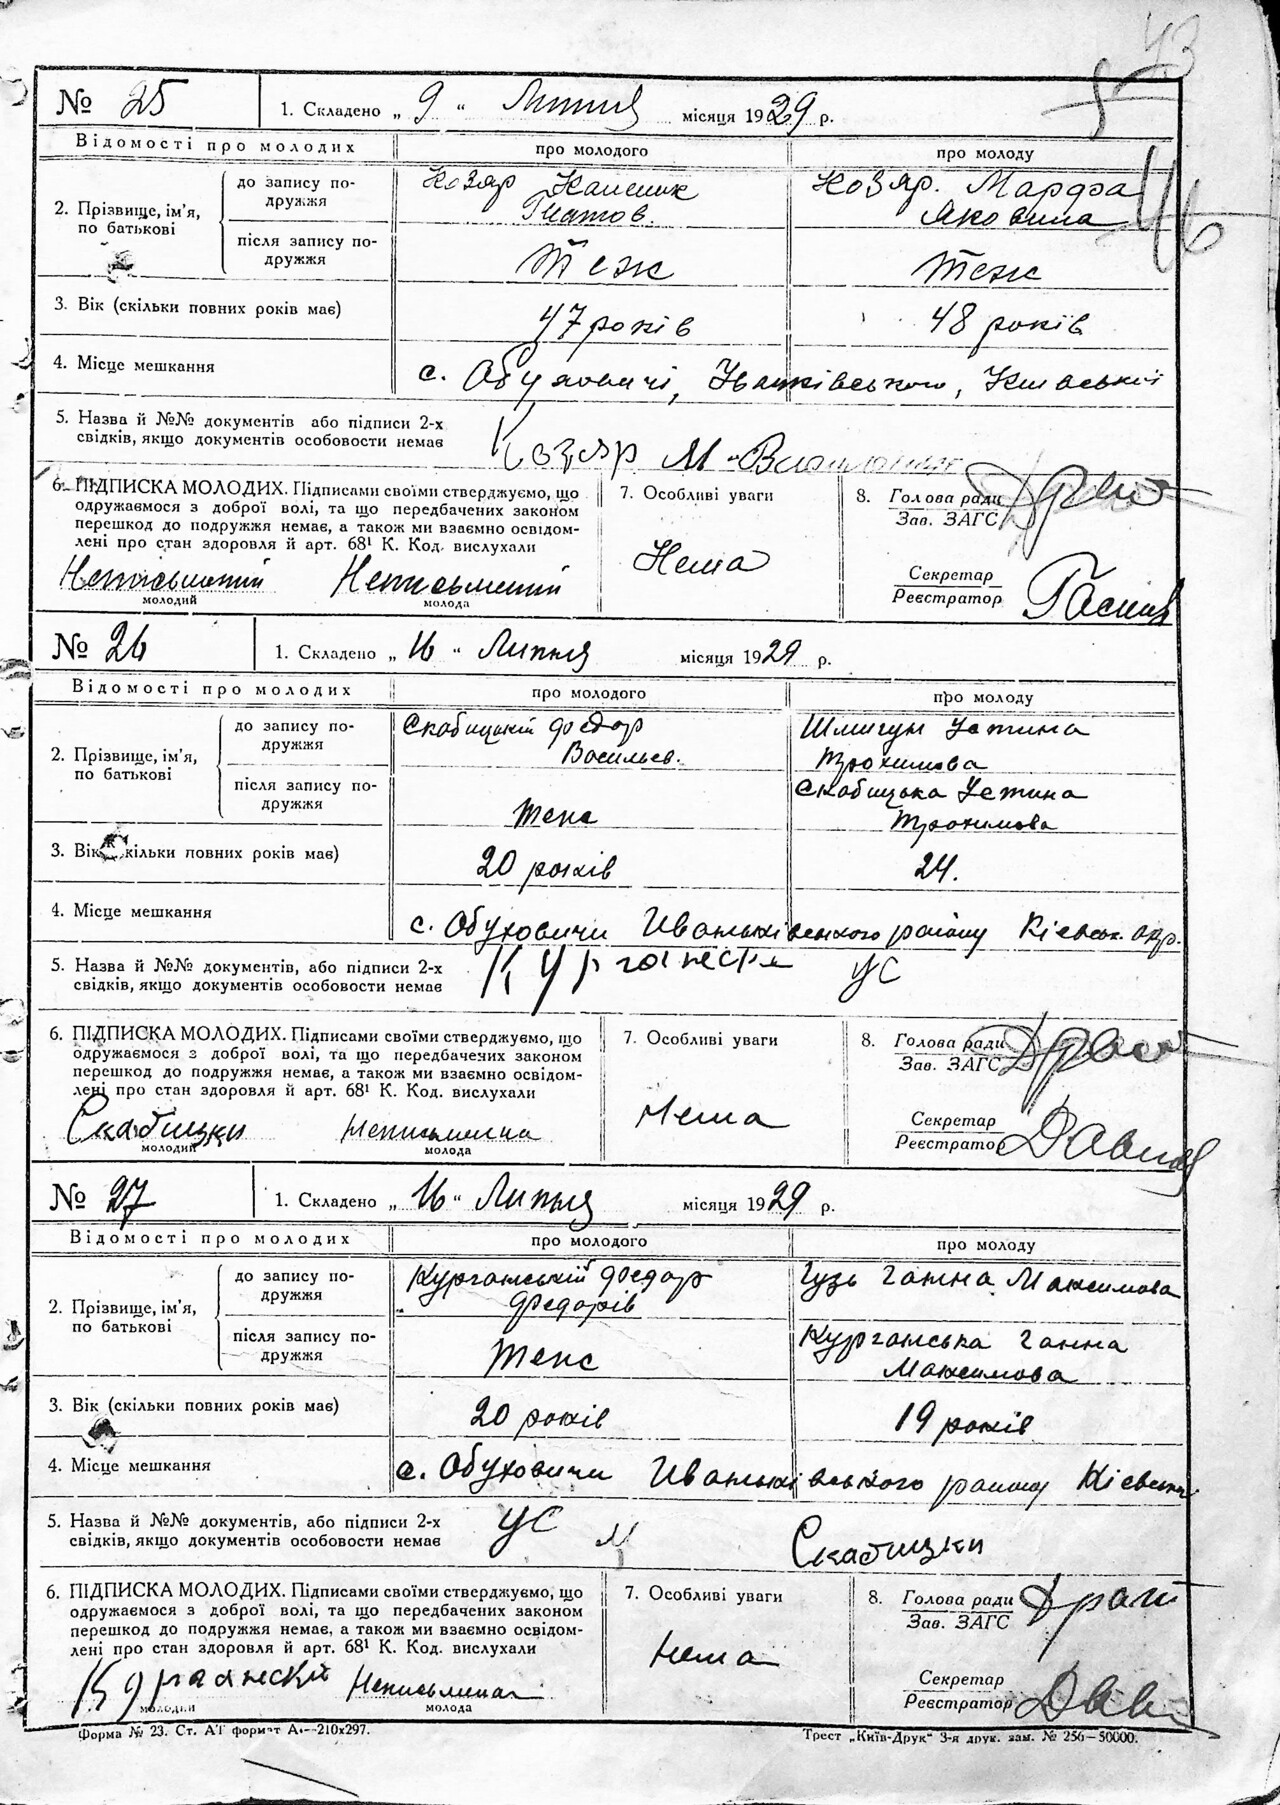 43
46
№ 25 1. Складено „ 9 “ Липня місяця 1929 р.
Відомості про молодих про молодого про молоду
2. Прізвище, ім'я, по батькові
до запису подружжя Козяр Гнатов. Козяр. Марфа Яковина
після запису подружжя Теж Теж
3. Вік (скільки повних років має) 47 років 48 років
4. Місце мешкання с. Обуховичі, Іванківського, Київської
5. Назва й №№ документів або підписи 2-х
свідків, якщо документів особовости немає Козяр М
6. ПІДПИСКА МОЛОДИХ. Підписами своїми стверджуємо, що
одружаємося з доброї волі, та що передбачених законом
перешкод до подружжя немає, а також ми взаємно освідом-
лені про стан здоровля й арт. 68¹ К. Код. вислухали
Неписьменій Неписьменій
молодий молода
7. Особливі уваги
Нема
8. Голова ради
Зав. ЗАГС
Секретар
Реєстратор
№ 26 1. Складено „ 16 “ Липня місяця 1929 р.
Відомості про молодих про молодого про молоду
2. Прізвище, ім'я, по батькові
до запису подружжя Скабицькій Федор Васильев. Шлигун Устина Трохимова
після запису подружжя Теж Скабицька Устина Трохимова
3. Вік (скільки повних років має) 20 років 24.
4. Місце мешкання с. Обуховичи Иваньківського району Кіевськ. окр.
5. Назва й №№ документів, або підписи 2-х
свідків, якщо документів особовости немає УС
6. ПІДПИСКА МОЛОДИХ. Підписами своїми стверджуємо, що
одружаємося з доброї волі, та що передбачених законом
перешкод до подружжя немає, а також ми взаємно освідом-
лені про стан здоровля й арт. 68¹ К. Код. вислухали
Скабицки Неписьменна
молодий молода
7. Особливі уваги
Нема
8. Голова ради
Зав. ЗАГС
Секретар
Реєстратор
№ 27 1. Складено „ 16 “ Липня місяця 1929 р.
Відомості про молодих про молодого про молоду
2. Прізвище, ім'я, по батькові
до запису подружжя Курганській Федор Федорів Гузь Ганна Максимова
після запису подружжя Теж Курганська Ганна Максимова
3. Вік (скільки повних років має) 20 років 19 років
4. Місце мешкання с. Обуховичи Иваньківського району
5. Назва й №№ документів, або підписи 2-х
свідків, якщо документів особовости немає УС Скабицки
6. ПІДПИСКА МОЛОДИХ. Підписами своїми стверджуємо, що
одружаємося з доброї волі, та що передбачених законом
перешкод до подружжя немає, а також ми взаємно освідом-
лені про стан здоровля й арт. 68¹ К. Код. вислухали
молодий молода
7. Особливі уваги
Нема
8. Голова ради
Зав. ЗАГС
Секретар
Реєстратор
Форма № 23. Ст. АТ формат А4—210х297. Трест „Київ-Друк“ 3-я друк. зам. № 256—50000.